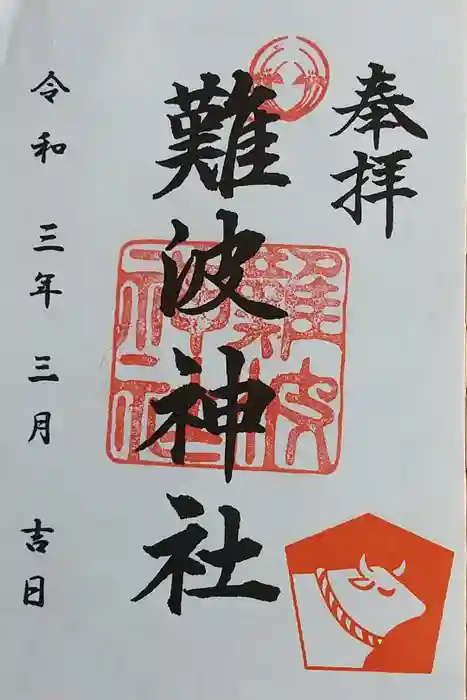 奉拝
難波神社
令和三年三月吉日
難波神社